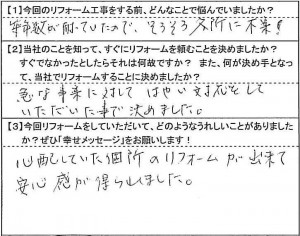 【1】今回のリフォーム工事をする前、どんなことで悩んでいましたか？
年数が経っていたので、そろそろ各所に不具！
【2】当社のことを知って、すぐにリフォームを頼むことを決めましたか？
すぐでなかったとしたらそれは何故ですか？　また、何が決め手となって、当社でリフォームすることに決めましたか？
急な事案に対して はやい対応をして
いただいた事で決めました。
【3】今回リフォームをしていただいて、どのようなうれしいことがありましたか？ぜひ「幸せメッセージ」をお願いします！
心配していた個所のリフォームが出来て
安心感が得られました。